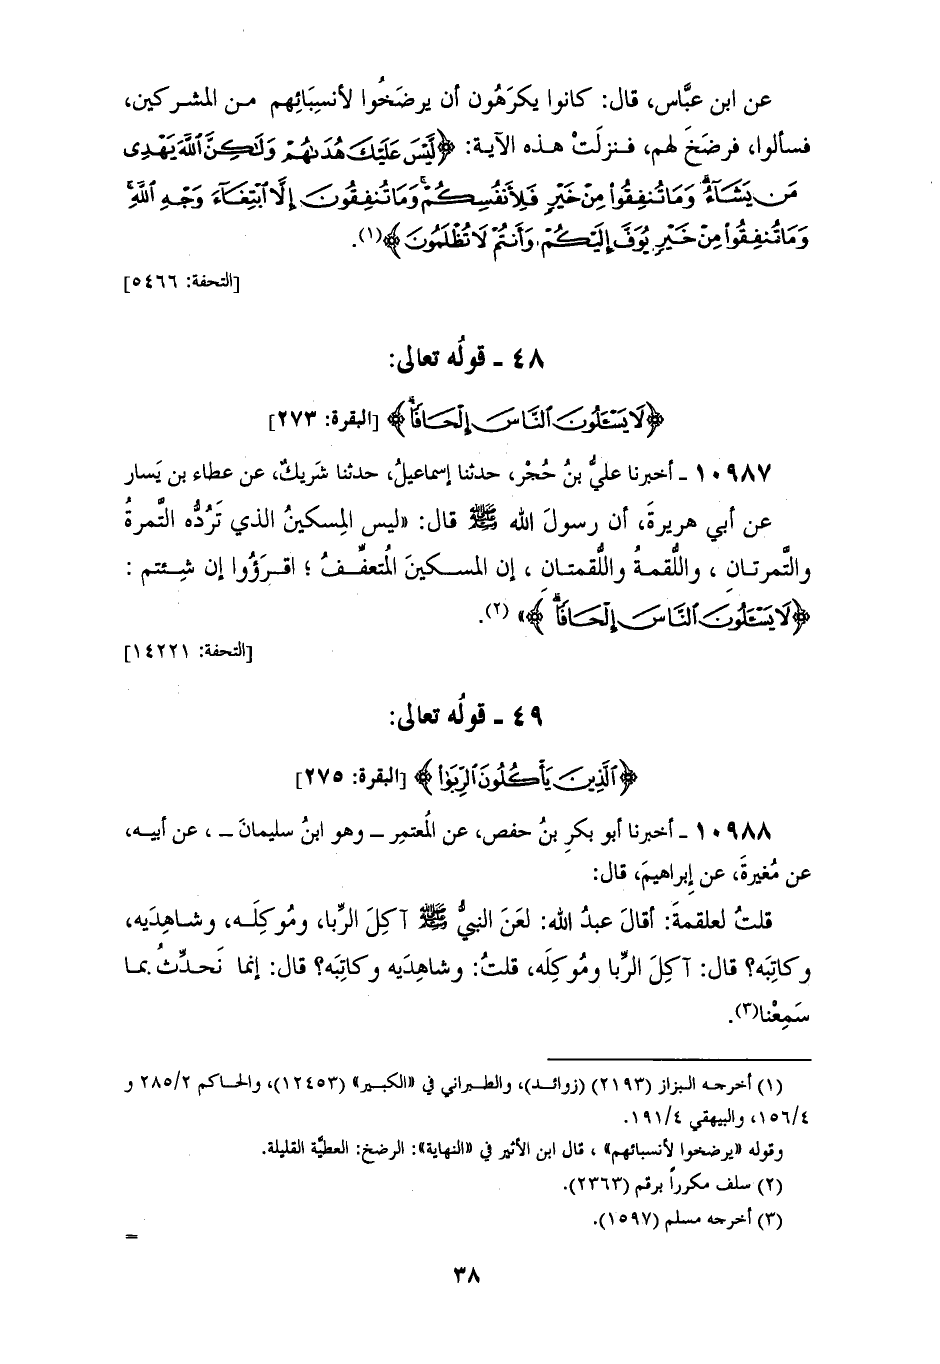 عن ابن عبَّاس، قال: كانوا يكرَهُون أن يرضَخُوا لأنسِبَائِهم من المشركين،
فسألوا، فرضَخَ لهم، فنزلَتْ هذه الآية: ﴿لَّيْسَ عَلَيْكَ هُدَىٰهُمْ وَلَٰكِنَّ ٱللَّهَ يَهْدِى
مَن يَشَآءُ ۗ وَمَا تُنفِقُوا۟ مِنْ خَيْرٍ فَلِأَنفُسِكُمْ ۚ وَمَا تُنفِقُونَ إِلَّا ٱبْتِغَآءَ وَجْهِ ٱللَّهِ ۚ
وَمَا تُنفِقُوا۟ مِنْ خَيْرٍ يُوَفَّ إِلَيْكُمْ وَأَنتُمْ لَا تُظْلَمُونَ﴾(١).
[التحفة: ٥٤٦٦]
٤٨ ـ قولُه تعالى:
﴿لَا يَسْـَٔلُونَ ٱلنَّاسَ إِلْحَافًا ۗ﴾ [البقرة: ٢٧٣]
١٠٩٨٧ ـ أخبرنا عليُّ بنُ حُجْر، حدثنا إسماعيلُ، حدثنا شَريكٌ، عن عطاء بن يَسار
عن أبي هريرةَ، أن رسولَ الله ﷺ قال: «ليس المِسكينُ الذي تَرُدُّه التَّمرةُ
والتَّمرتانِ ، واللُّقمةُ واللُّقمتانِ ، إن المسكينَ المُتعفِّفُ ؛ اقرَؤُوا إن شِئتم :
﴿لَا يَسْـَٔلُونَ ٱلنَّاسَ إِلْحَافًا ۗ﴾» (٢).
[التحفة: ١٤٢٢١]
٤٩ ـ قولُه تعالى:
﴿ٱلَّذِينَ يَأْكُلُونَ ٱلرِّبَوٰا۟﴾ [البقرة: ٢٧٥]
١٠٩٨٨ ـ أخبرنا أبو بكرِ بنُ حفص، عن المُعتمِر ــ وهو ابنُ سليمانَ ــ ، عن أبيه،
عن مُغيرةَ، عن إبراهيمَ، قال:
قلتُ لعلقمةَ: أقالَ عبدُ الله: لعَنَ النبيُّ ﷺ آكِلَ الرِّبا، ومُوكِلَه، وشاهِدَيه،
وكاتِبَه؟ قال: آكِلَ الرِّبا ومُوكِلَه، قلتُ: وشاهِدَيه وكاتِبَه؟ قال: إنما نَحدِّثُ بما
سَمِعْنا(٣).
(١) أخرجه البزار (٢١٩٣) (زوائد)، والطبراني في «الكبير» (١٢٤٥٣)، والحاكم ٢٨٥/٢ و
١٥٦/٤، والبيهقي ١٩١/٤.
وقوله «يرضخوا لأنسبائهم» ، قال ابن الأثير في «النهاية»: الرضخ: العطيَّة القليلة.
(٢) سلف مكرراً برقم (٢٣٦٣).
(٣) أخرجه مسلم (١٥٩٧).
=
٣٨